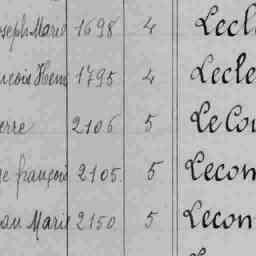 oseph Marie 1698 4 Lecl
ncois Henri 1795 4 Lecle
erre 2106 5 Le Cou
se françois 2105 5 Lecon
ean Marie 2150 5 Lecon